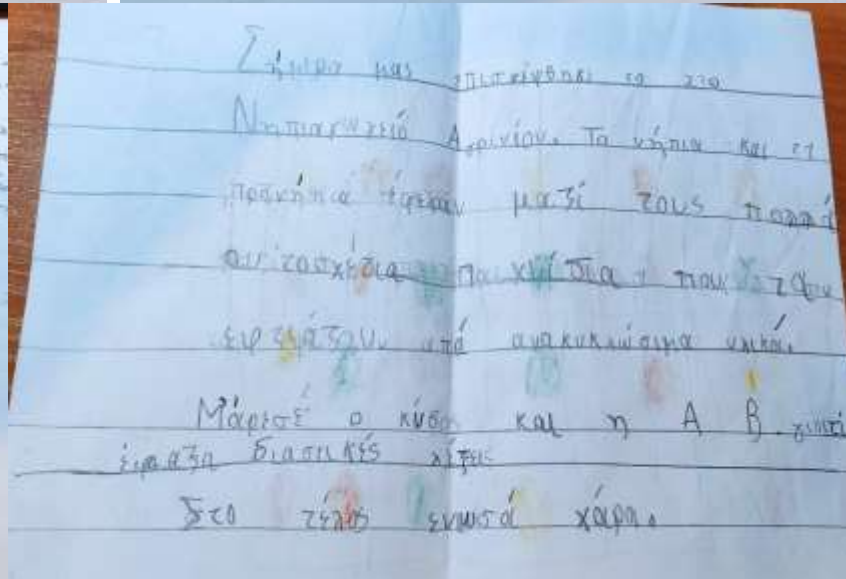 Σήμερα μας επισκέφθηκε το 2το
Νηπιαγωγείο Αγρινίου. Τα νήπια και τα
προνήπια έφεραν μαζί τους πολλά
αυτοσχέδια παιχνίδια, που
από ανακυκλώσιμα υλικά.
Μάρεσέ ο κύβος και η Α Β. γιατί
έφιαξα διασηκές λέξεις
Στο τέλος ενιωσά χάρα.